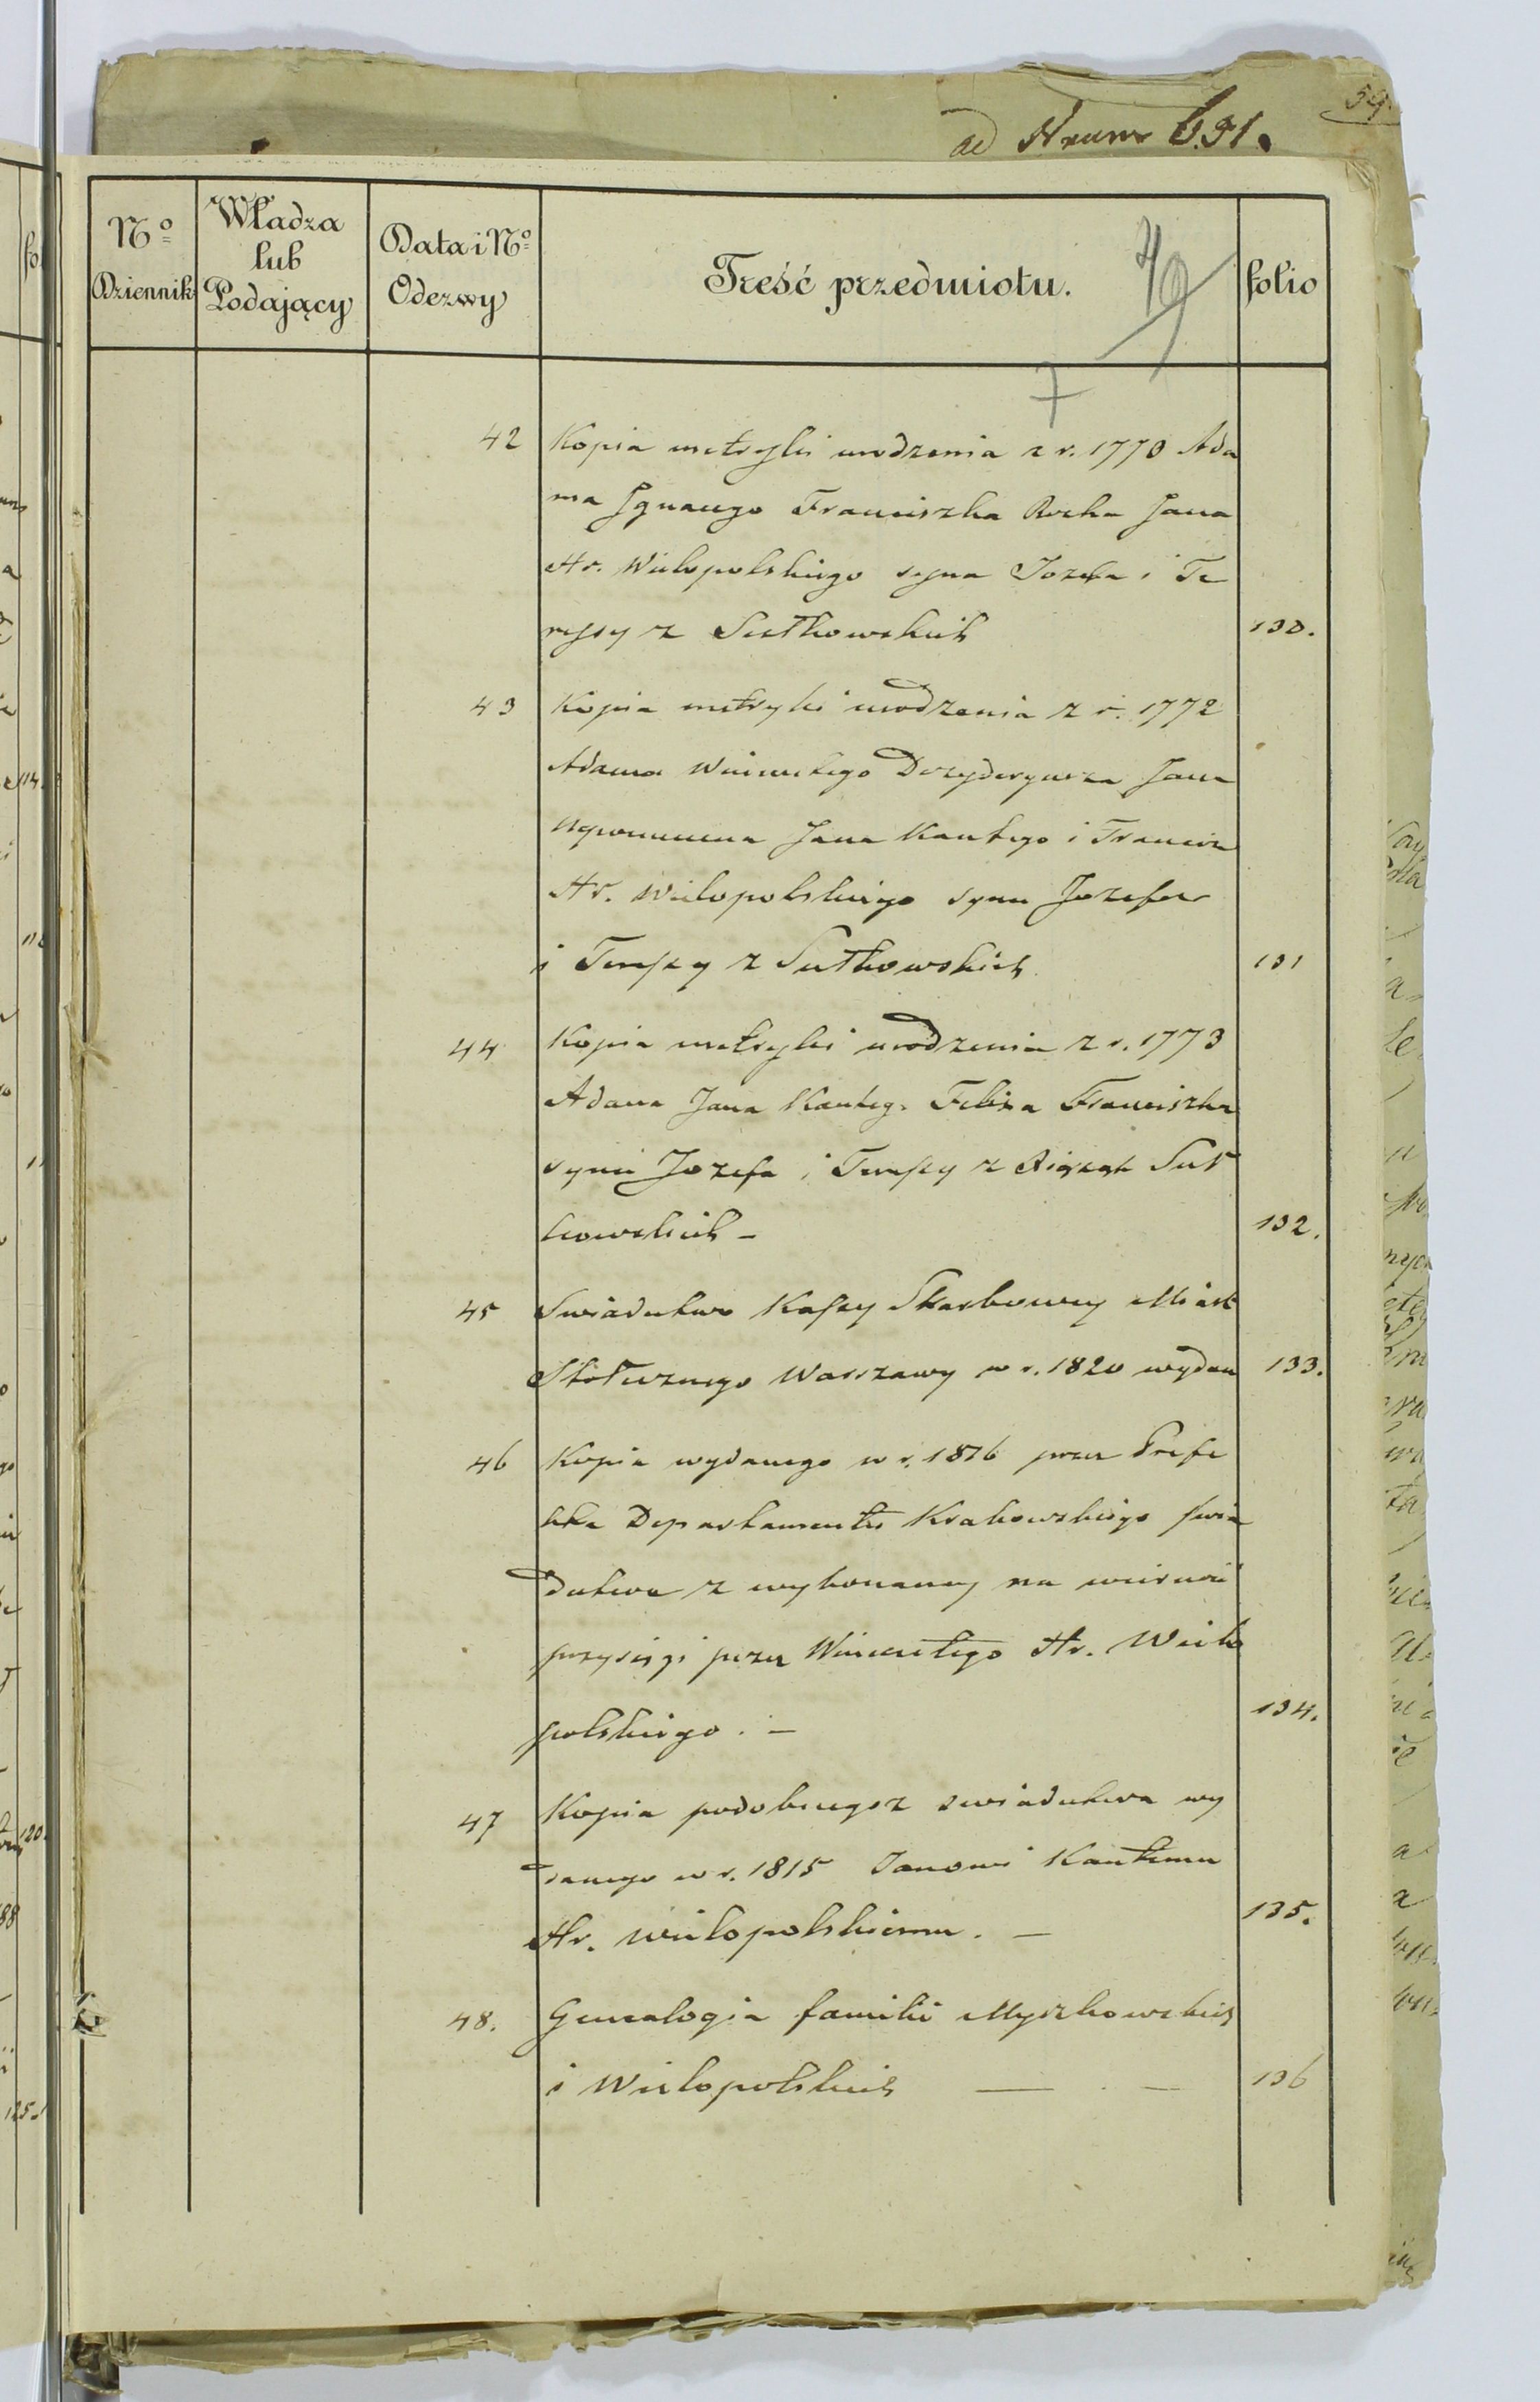 59.
ad Nrum 691.
No Dziennik
Władza lub Podający
Data i No Odezwy
Treść przedmiotu.
folio
42 Kopia metryki urodzenia z r. 1770 Ada
ma Ignacego Franciszka Rocha Jana
Hr. Wielopolskiego syna Jozefa i Te
ressy z Sułkowskich 130.
43 Kopia metryki urodzenia z r. 1772
Adama Wincentego Dezyderyusza Jana
Nepomucena Jana Kantego i Francisz
Hr. Wielopolskiego syna Jozefa
i Teressy z Sułkowskich 131
44 Kopia metryki urodzenia z r. 1773
Adama Jana Kanteg. Felixa Franciszka
syna Jozefa i Teressy z Xiążąt Suł
kowskich – 132.
45 Swiadectwo Kassy Skarbowey Miast
Stołecznego Warszawy w r. 1820 wydan 133.
46 Kopia wydanego w r. 1816 przez Prefe
kta Departamentu Krakowskiego swia
dectwa z wykonaney na wiernosć
przysięgi przez Wincentego Hr. Wielo
polskiego. – 134.
47 Kopia podobnegoz swiadectwa wy
danego w r. 1815 Janowi Kantemu
Hr. Wielopolskiemu. – 135.
48. Genealogia familii Myszkowskich
i Wielopolskich — 136